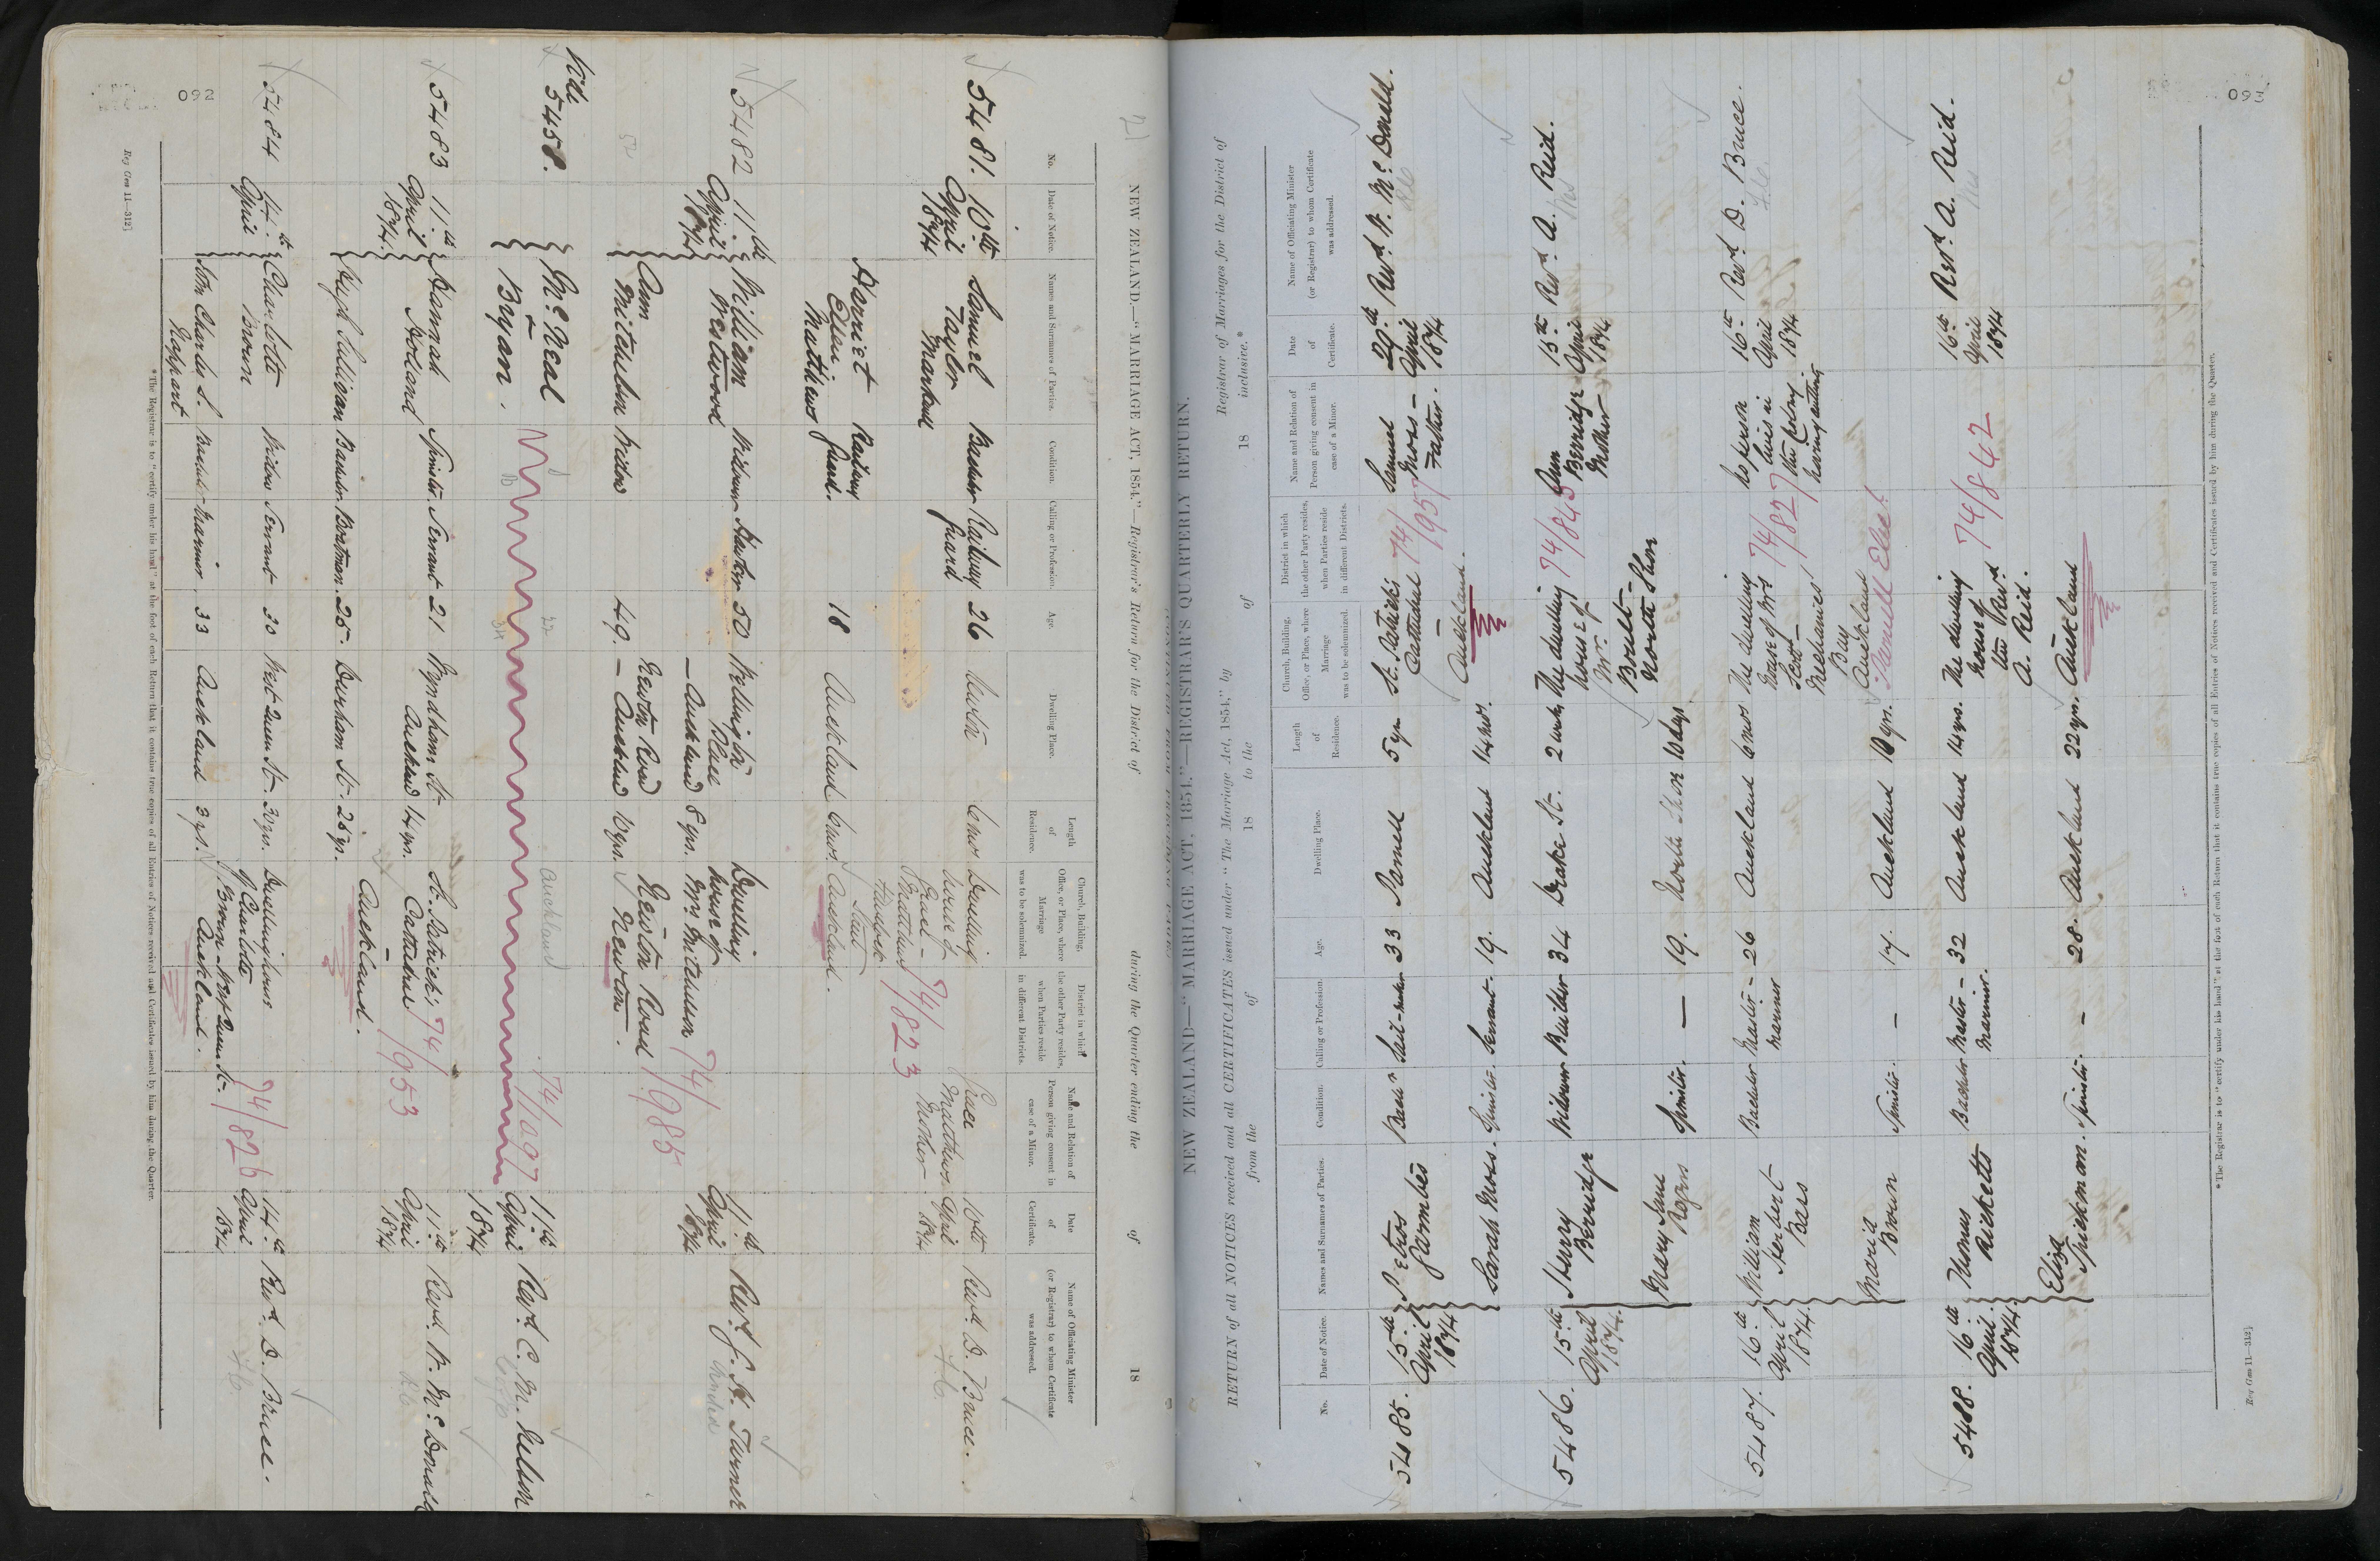 21
NEW ZEALAND.—"MARRIAGE ACT, 1854."—Registrar's Return for the District of during the Quarter ending the of 18
No.
Date of Notice.
Names and Surnames of Parties.
Condition.
Calling or Profession.
Age.
Dwelling Place.
Length of Residence.
Church, Building, Office, or Place, where Marriage was to be solemnized.
District in which the other Party resides, when Parties reside in different Districts.
Name and Relation of Person giving consent in case of a Minor.
Date of Certificate.
Name of Officiating Minister (or Registrar) to whom Certificate was addressed.
5481. 10th April 1874
Samuel Taylor Markwell Bachelor Railway Guard 26 6 mos
Dwelling house of 74/823
Matthews Mother
10th April 1874 Revd. D. Bruce.
Harriet Ellen Matthews Railway Guard. 18 Auckland 6 mos. Auckland.
5482 11th April 1874
William Westwood Widower 50 Wellington Place — Auckland 8 yrs.
Dwelling house of Mrs Mitchelson 74/985
11th April 1874 Revd. J. H. Turner
Ann Mitchelson Widow 49. Newton Road — Auckland 10 yrs. Newton Road Newton.
Vide 5458.
McNeal — Bryan.
Auckland 74/1097
11th April 1874 Revd. C. M. Nelson
5483 11th April 1874.
Hannah Holland Spinster Servant 21 Wyndham St. Auckland 14 yrs.
St. Patrick's Cathedral 74/953
11th April 1874 Revd. W. McDonald
Hugh Sullivan Bachelor Boatman. 25. Durham St. 25 yrs. Auckland.
5484 14th April
Charlotte Brown Widow Servant 30 West Queen St. 20 yrs.
Dwelling house of Charlotte Brown — West Queen St. — Auckland. 74/826
14th April 1874 Revd. D. Bruce.
John Charles S. Bachelor Mariner. 33 Auckland 3 yrs.
*The Registrar is to "certify under his hand" at the foot of each Return that it contains true copies of all Entries of Notices received and Certificates issued by him during the Quarter.
Reg Gen 11—312]
092
NEW ZEALAND—"MARRIAGE ACT, 1854."—REGISTRAR'S QUARTERLY RETURN.
RETURN of all NOTICES received and all CERTIFICATES issued under "The Marriage Act, 1854," by Registrar of Marriages for the District of
from the of 18 to the of 18 inclusive.*
No.
Date of Notice.
Names and Surnames of Parties.
Condition.
Calling or Profession
Age.
Dwelling Place.
Length of Residence.
Church, Building, Office, or Place, where Marriage was to be solemnized.
District in which the other Party resides, when Parties reside in different Districts.
Name and Relation of Person giving consent in case of a Minor.
Date of Certificate.
Name of Officiating Minister (or Registrar) to whom Certificate was addressed.
5485. 15th April 1874
Petros Sail-maker 33 Parnell 5 yrs
St. Patrick's Cathedral — Auckland. 74/957
Samuel Moses — Father.
29th April 1874 Revd. W. McDonald.
Sarah Moses. Spinster Servant. 19. Auckland 14 mos.
5486. 15th April 1874.
Henry Berridge Widower Builder 34 Drake St. 2 weeks
The dwelling house of Mr. Boult — North Shore 74/843
Ann Berridge Mother
15th April 1874 Revd. A. Reid.
Mary Jane Rogers Spinster. — 19. North Shore 10 days
5487. 16th April 1874.
William Herbert Bears Bachelor Master — Mariner 26 Auckland 6 mos
The dwelling house of Mrs Scott — Mechanics' Bay Auckland 74/827
No person lives in the Colony having authority
16th April 1874 Revd. D. Bruce.
Maria Brown Spinster. — 17. Auckland 10 yrs.
5488. 16th April. 1874.
Thomas Ricketts Bachelor Master — Mariner. 32 Auckland 14 yrs.
The dwelling house of the Revd. A. Reid. Auckland 74/842
16th April 1874 Revd. A. Reid.
Eliza Spickman. Spinster. — 28. Auckland 22 yrs.
*The Registrar is to "certify under his hand" at the foot of each Return that it contains true copies of all Entries of Notices received and Certificates issued by him during the Quarter.
Reg Gen 11—312]
093